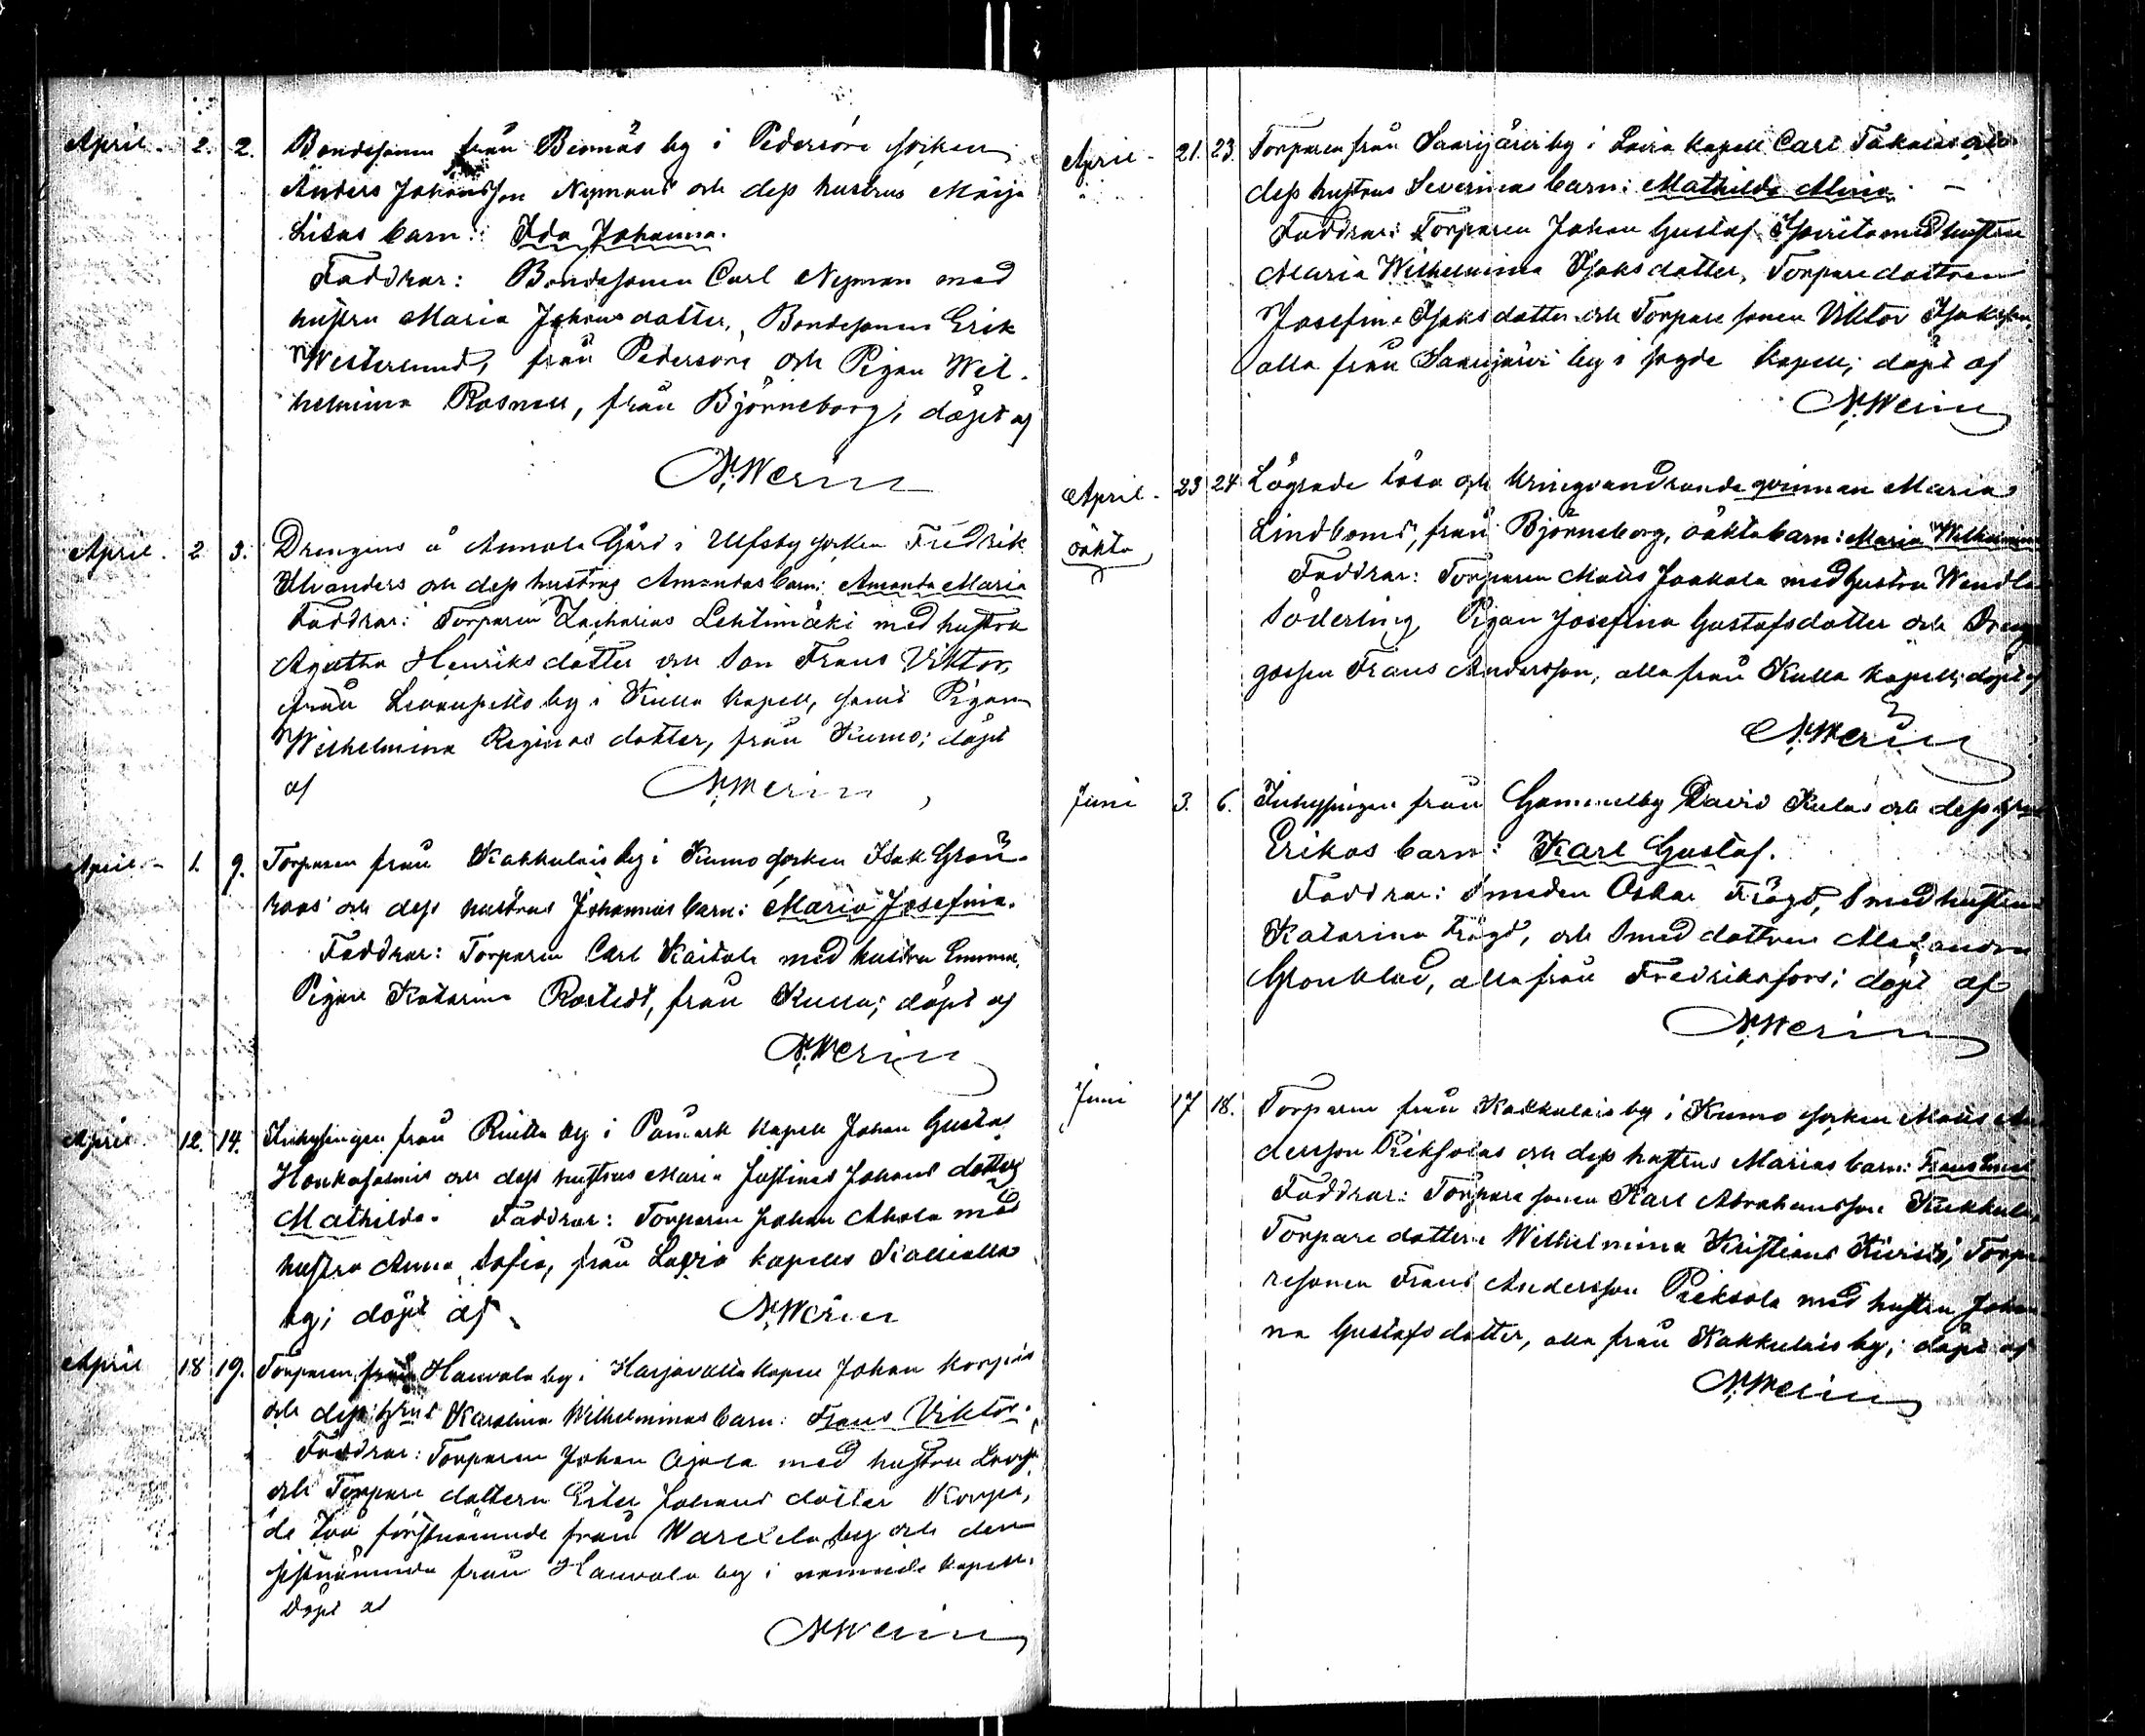 April. 2. 2. Bondesonen från Bennäs by i Pedersöre socken
Anders Johansson Nymans och dess hustrus Maija
Lisas barn: Ida Johanna.
Faddrar: Bondesonen Carl Nyman med
hustru Maria Johansdotter, Bondesonen Erik
Westerlund, från Pedersöre och Pigan Wil-
helmina Rosnell, från Björneborg; döpt af
N. Merin
April. 2 3. Drengens å Annola Gård i Ulfsby socken Fredrik
Alvanders och dess hustrus Amandas barn: Amanda Maria
Faddrar: Torparen Zacharias Lehtimäki med hustru
Agatha Henriksdotter och Son Frans Viktor,
från by i Kulla kapell, samt Pigan
Wilhelmina Reginas dotter, från Kumo; döpt
af N. Merin
April 1. 9. Torparen från Kakkulais by i Kumo socken Isak Grön-
roos' och dess hustrus Johannas barn: Maria Josefina.
Faddrar: Torparen Carl Kaitala med hustru Emma,
Pigan Katarina Rostedt, från Kulla; döpt af
N. Merin
April 12. 14. Inhysingen från by i Påmark kapell Johan Gustaf
Honkasalmis och dess hustrus Maria Justinas Johans dotter
Mathilda. Faddrar: Torparen Johan Ahola med
hustru Anna Sofia, från Lavia kapells
by; döpt af N. Merin
April 18 19. Torparen från Hauvola by i Harjavalta kapell Johan Korpis
och dess hrus Karolina Wilhelminas barn: Frans Viktor.
Faddrar: Torparen Johan Ojala med hustru
och Torpare dottern Ester Johans dotter Korpi,
de två förstnämnde från by och den
sistnämnda från Hauvola by i nämnde kapell.
döpt af
N. Merin
April 21. 23. Torparen från Saarijärvi by i Lavia kapell Carl och
dess hustrus Severinas barn: Mathilda Alina. —
Faddrar: Torparen Johan Gustaf med hustru
Maria Wilhelmina Isaksdotter, Torparedottren
Josefina Isaksdotter och Torpare sonen Viktor Isaksson
alla från Saarijärvi by i sagde kapell; döpt af
N. Merin
April 23 24 Lägrade lösa och kringvandrande qvinnan Maria
oäkta Lindboms, från Björneborg, oäkta barn: Maria Wilhelmina
Faddrar: Torparen Matts Jaakola med hustru Wendla
Söderling, Pigan Josefina Gustafsdotter och Dreng
gossen Frans Andersson, alla från Kulla kapell; döpt af
N. Merin
Juni 3. 6. Inhysingen från Gammelby David Kulas och dess hrus
Erikas barn: Karl Gustaf.
Faddrar: Smeden Oskar Frägd, Smedhustrun
Katarina Frägd, och Smed dottren Alexandra
Gronblad, alla från Fredriksfors; döpt af
N. Merin
Juni 17 18. Torparen från Kakkulais by i Kumo socken Matts An-
dersson Pieksolas och dess hustrus Marias barn: Frans Emil
Faddrar: Torpare sonen Karl Abrahamsson
Torpare dottern Wilhelmina Kristians Torpa-
resonen Frans Andersson Pieksola med hustru Johan-
na Gustafsdotter, alla från Kakkulais by; döpt af
N. Merin